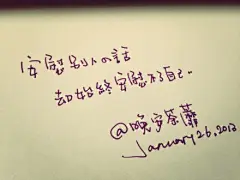 安慰别人的话
却始终安慰不了自己..
@晚安荼蘼
January 26, 2013